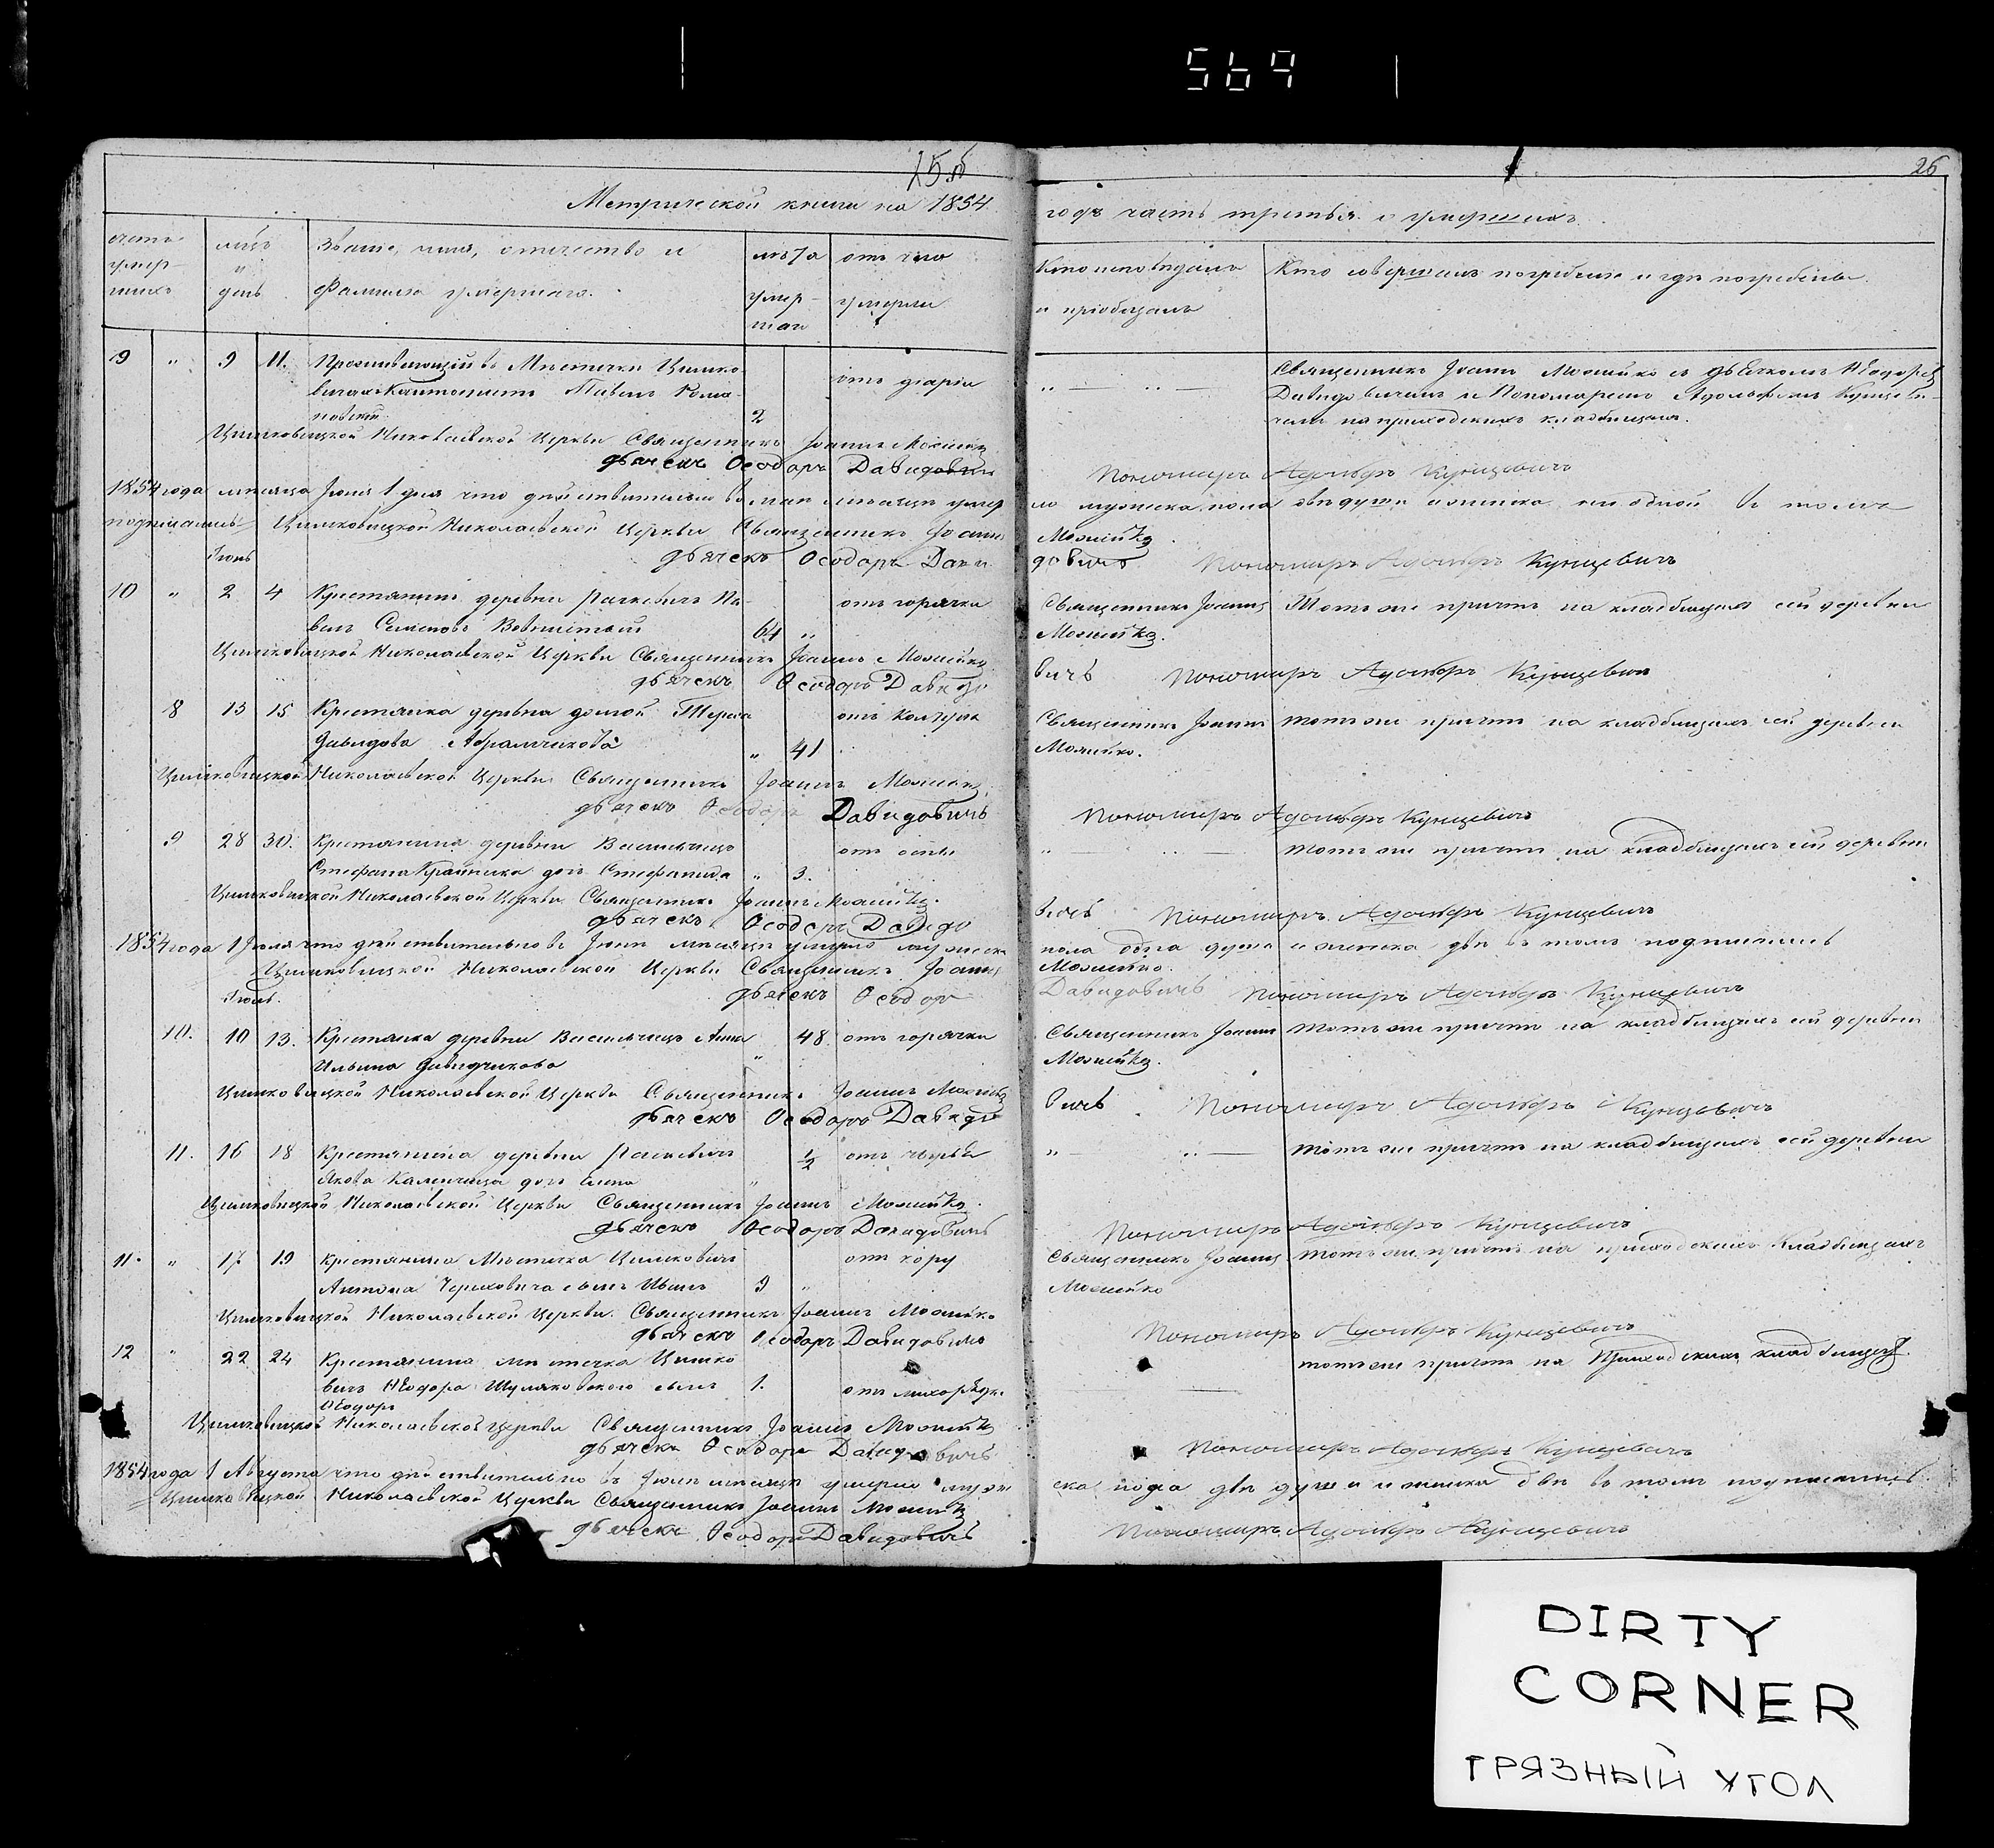 569
25 об
26
Метрической книги на 1854
годъ часть третья о умершихъ.
счетъ умер- шихъ
мѣць и день
Званіе, имя, отчество и
фамилія умершаго.
лѣта умер- шаго
отъ чего
умерли
Кто исповѣдалъ
и пріобщалъ
Кто совершалъ погребеніе и гдѣ погребены.
9 " 9 11. Проживающій въ Мѣстечкѣ Цимко- отъ
вичахъ Кантонистъ Павелъ Рома-
новскій 2
Священникъ Іоаннъ Мосейко съ дьячкомъ Ѳеодоромъ
Давидовичемъ и Пономаремъ Адольфомъ Кунцеви-
чемъ на приходскихъ кладбищахъ.
Цимковицкой Николаевской Церкви Священникъ Іоаннъ
дьячекъ Ѳеодоръ Давидовичъ
Пономаръ Адольфъ Кунцевичъ
1854 года мѣсяца Іюня 1 дня что дѣйствительно въ маѣ мѣсяцѣ умер
ло мужеска пола двѣ души а женска ни одной въ томъ
подписались Цимковицкой Николаевской Церкви Священникъ Іоаннъ
дьячекъ Ѳеодоръ Дави
довичъ Пономаръ Адольфъ Кунцевичъ
Іюнь
10 " 2 4 Крестьянинъ деревни Па- отъ горячки
велъ Семеновъ 64 "
Священникъ Іоаннъ Тотъ же причтъ на кладбищахъ сей деревни
Цимковицкой Николаевской Церкви Священникъ Іоаннъ
дьячекъ Ѳеодоръ Давидо
вичъ Пономаръ Адольфъ Кунцевичъ
8 13 15 Крестьянка деревни отъ
Давидова " 41
Священникъ Іоаннъ тотъ же причтъ на кладбищахъ сей деревни
Цимковицкой Николаевской Церкви Священникъ Іоаннъ
дьячекъ Ѳеодоръ Давидовичъ
Пономаръ Адольфъ Кунцевичъ
9 28 30. Крестьянина деревни отъ оспы
Стефана дочь Стефанида " 3.
тотъ же причтъ на кладбищахъ сей деревни
Цимковицкой Николаевской Церкви Священникъ Іоаннъ
дьячекъ Ѳеодоръ Давидо
вичъ Пономаръ Адольфъ Кунцевичъ
1854 года 1 Іюля что дѣйствительно въ Іюнѣ мѣсяцѣ умерло мужеска
пола одна душа а женска двѣ въ томъ подписались
Цимковицкой Николаевской Церкви Священникъ Іоаннъ
дьячекъ Ѳеодоръ
Давидовичъ Пономаръ Адольфъ Кунцевичъ
Іюль.
10. 10 13. Крестьянка деревни Анна 48. отъ горячки
Ильина "
Священникъ Іоаннъ тотъ же причтъ на кладбищахъ сей деревни
Цимковицкой Николаевской Церкви Священникъ Іоаннъ
дьячекъ Ѳеодоръ Давидо
вичъ Пономаръ Адольфъ Кунцевичъ
11. 16 18 Крестьянина деревни 1/2 отъ
Якова дочь "
тотъ же причтъ на кладбищахъ сей деревни
Цимковицкой Николаевской Церкви Священникъ Іоаннъ
дьячекъ Ѳеодоръ Давидовичъ
Пономаръ Адольфъ Кунцевичъ
11. " 17 19 Крестьянина Мѣстечка Цимковичъ отъ
Антона сынъ Иванъ 9 "
Священникъ Іоаннъ тотъ же причтъ на приходскихъ кладбищахъ
Цимковицкой Николаевской Церкви Священникъ Іоаннъ
дьячекъ Ѳеодоръ Давидовичъ
Пономаръ Адольфъ Кунцевичъ
12 " 22 24 Крестьянина мѣстечка Цимко
вичъ Ѳеодора сынъ 1. отъ лихорадки
Ѳеодоръ
тотъ же причтъ на приходскихъ кладбищахъ.
Цимковицкой Николаевской церкви Священникъ Іоаннъ
дьячекъ Ѳеодоръ Давидовичъ
Пономаръ Адольфъ Кунцевичъ
1854 года 1 Августа что дѣйствительно въ Іюлѣ мѣсяцѣ умерло муже
ска пола двѣ души и женска двѣ въ томъ подписались
Цимковицкой Николаевской Церкви Священникъ Іоаннъ
дьячекъ Ѳеодоръ Давидовичъ
Пономаръ Адольфъ Кунцевичъ
DIRTY
CORNER
ГРЯЗНЫЙ УГОЛ